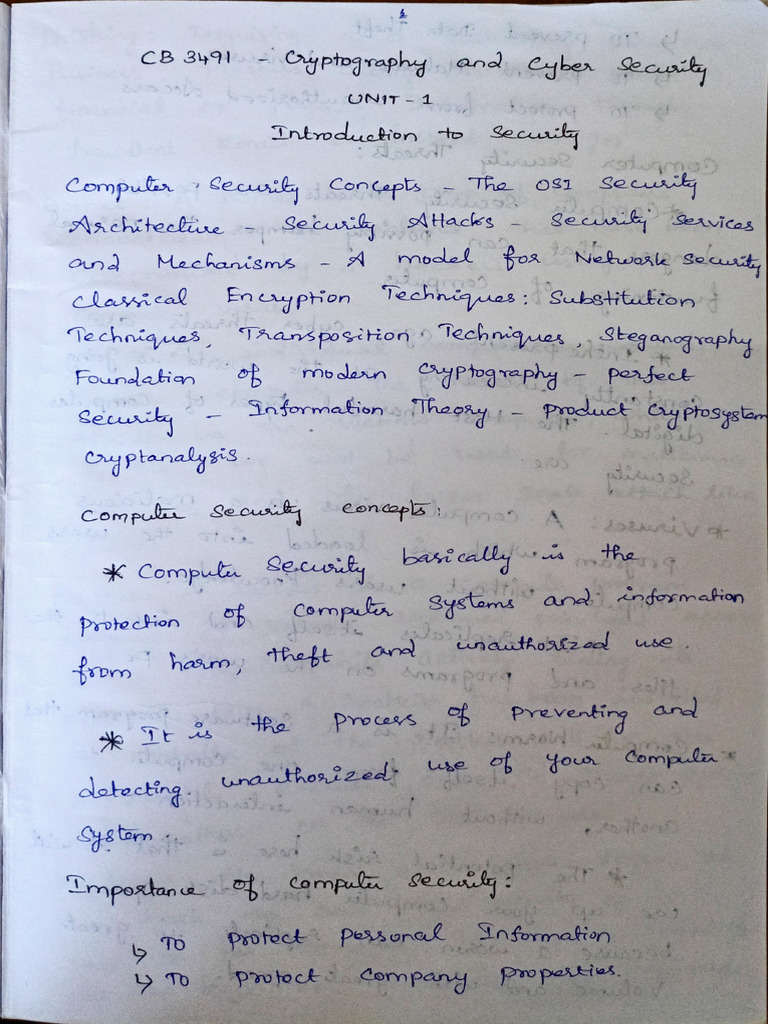 CB 3491 - Cryptography and Cyber Security
UNIT - 1
Introduction to Security
Computer Security Concepts - The OSI Security
Architecture - Security Attacks - Security Services
and Mechanisms - A model for Network Security
Classical Encryption Techniques: Substitution
Techniques, Transposition Techniques, Steganography
Foundation of modern cryptography - perfect
Security - Information Theory - product cryptosystem
Cryptanalysis.
Computer Security concepts:
* Computer Security basically is the
protection of computer systems and information
from harm, theft and unauthorized use.
* It is the process of preventing and
detecting unauthorized use of your computer
System.
Importance of computer security:
↳ To protect personal Information
↳ To protect company properties.